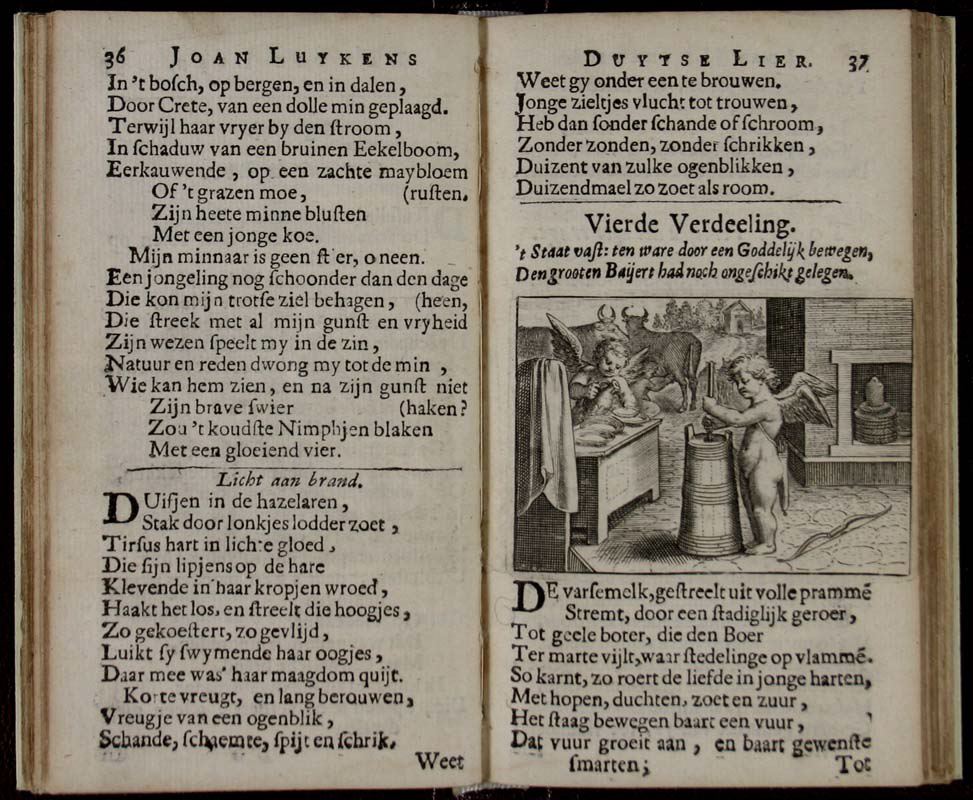 36 JOAN LUYKENS
In 't boſch, op bergen, en in dalen,
Door Crete, van een dolle min geplaagd.
Terwijl haar vryer by den ſtroom,
In ſchaduw van een bruinen Eekelboom,
Eerkauwende, op een zachte maybloem
Of 't grazen moe, (ruſten.
Zijn heete minne bluſten
Met een jonge koe.
Mijn minnaar is geen ſtier, o neen.
Een jongeling nog ſchoonder dan den dage
Die kon mijn trotſe ziel behagen, (heen,
Die ſtreek met al mijn gunſt en vryheid
Zijn wezen ſpeelt my in de zin,
Natuur en reden dwong my tot de min,
Wie kan hem zien, en na zijn gunſt niet
Zijn brave ſwier (haken?
Zou 't koudſte Nimphjen blaken
Met een gloeiend vier.
Licht aan brand.
DUifjen in de hazelaren,
Stak door lonkjes lodder zoet,
Tirſus hart in lichte gloed,
Die ſijn lipjens op de hare
Klevende in haar kropjen wroed,
Haakt het los, en ſtreelt die hoogjes,
Zo gekoeſtert, zo gevlijd,
Luikt ſy ſwymende haar oogjes,
Daar mee was' haar maagdom quijt.
Korte vreugt, en lang berouwen,
Vreugje van een ogenblik,
Schande, ſchaemte, ſpijt en ſchrik.
Weet
DUYTSE LIER. 37
Weet gy onder een te brouwen.
Jonge zieltjes vlucht tot trouwen,
Heb dan ſonder ſchande of ſchroom,
Zonder zonden, zonder ſchrikken,
Duizent van zulke ogenblikken,
Duizendmael zo zoet als room.
Vierde Verdeeling.
't Staat vaſt: ten ware door een Goddelijk bewegen,
Den grooten Baijert had noch ongeſchikt gelegen.
DE varſe melk, geſtreelt uit volle prammē
Stremt, door een ſtadiglijk geroer,
Tot geele boter, die den Boer
Ter marte vijlt, waar ſtedelinge op vlammē.
So karnt, zo roert de liefde in jonge harten,
Met hopen, duchten, zoet en zuur,
Het ſtaag bewegen baart een vuur,
Dat vuur groeit aan, en baart gewenſte
ſmarten; Tot